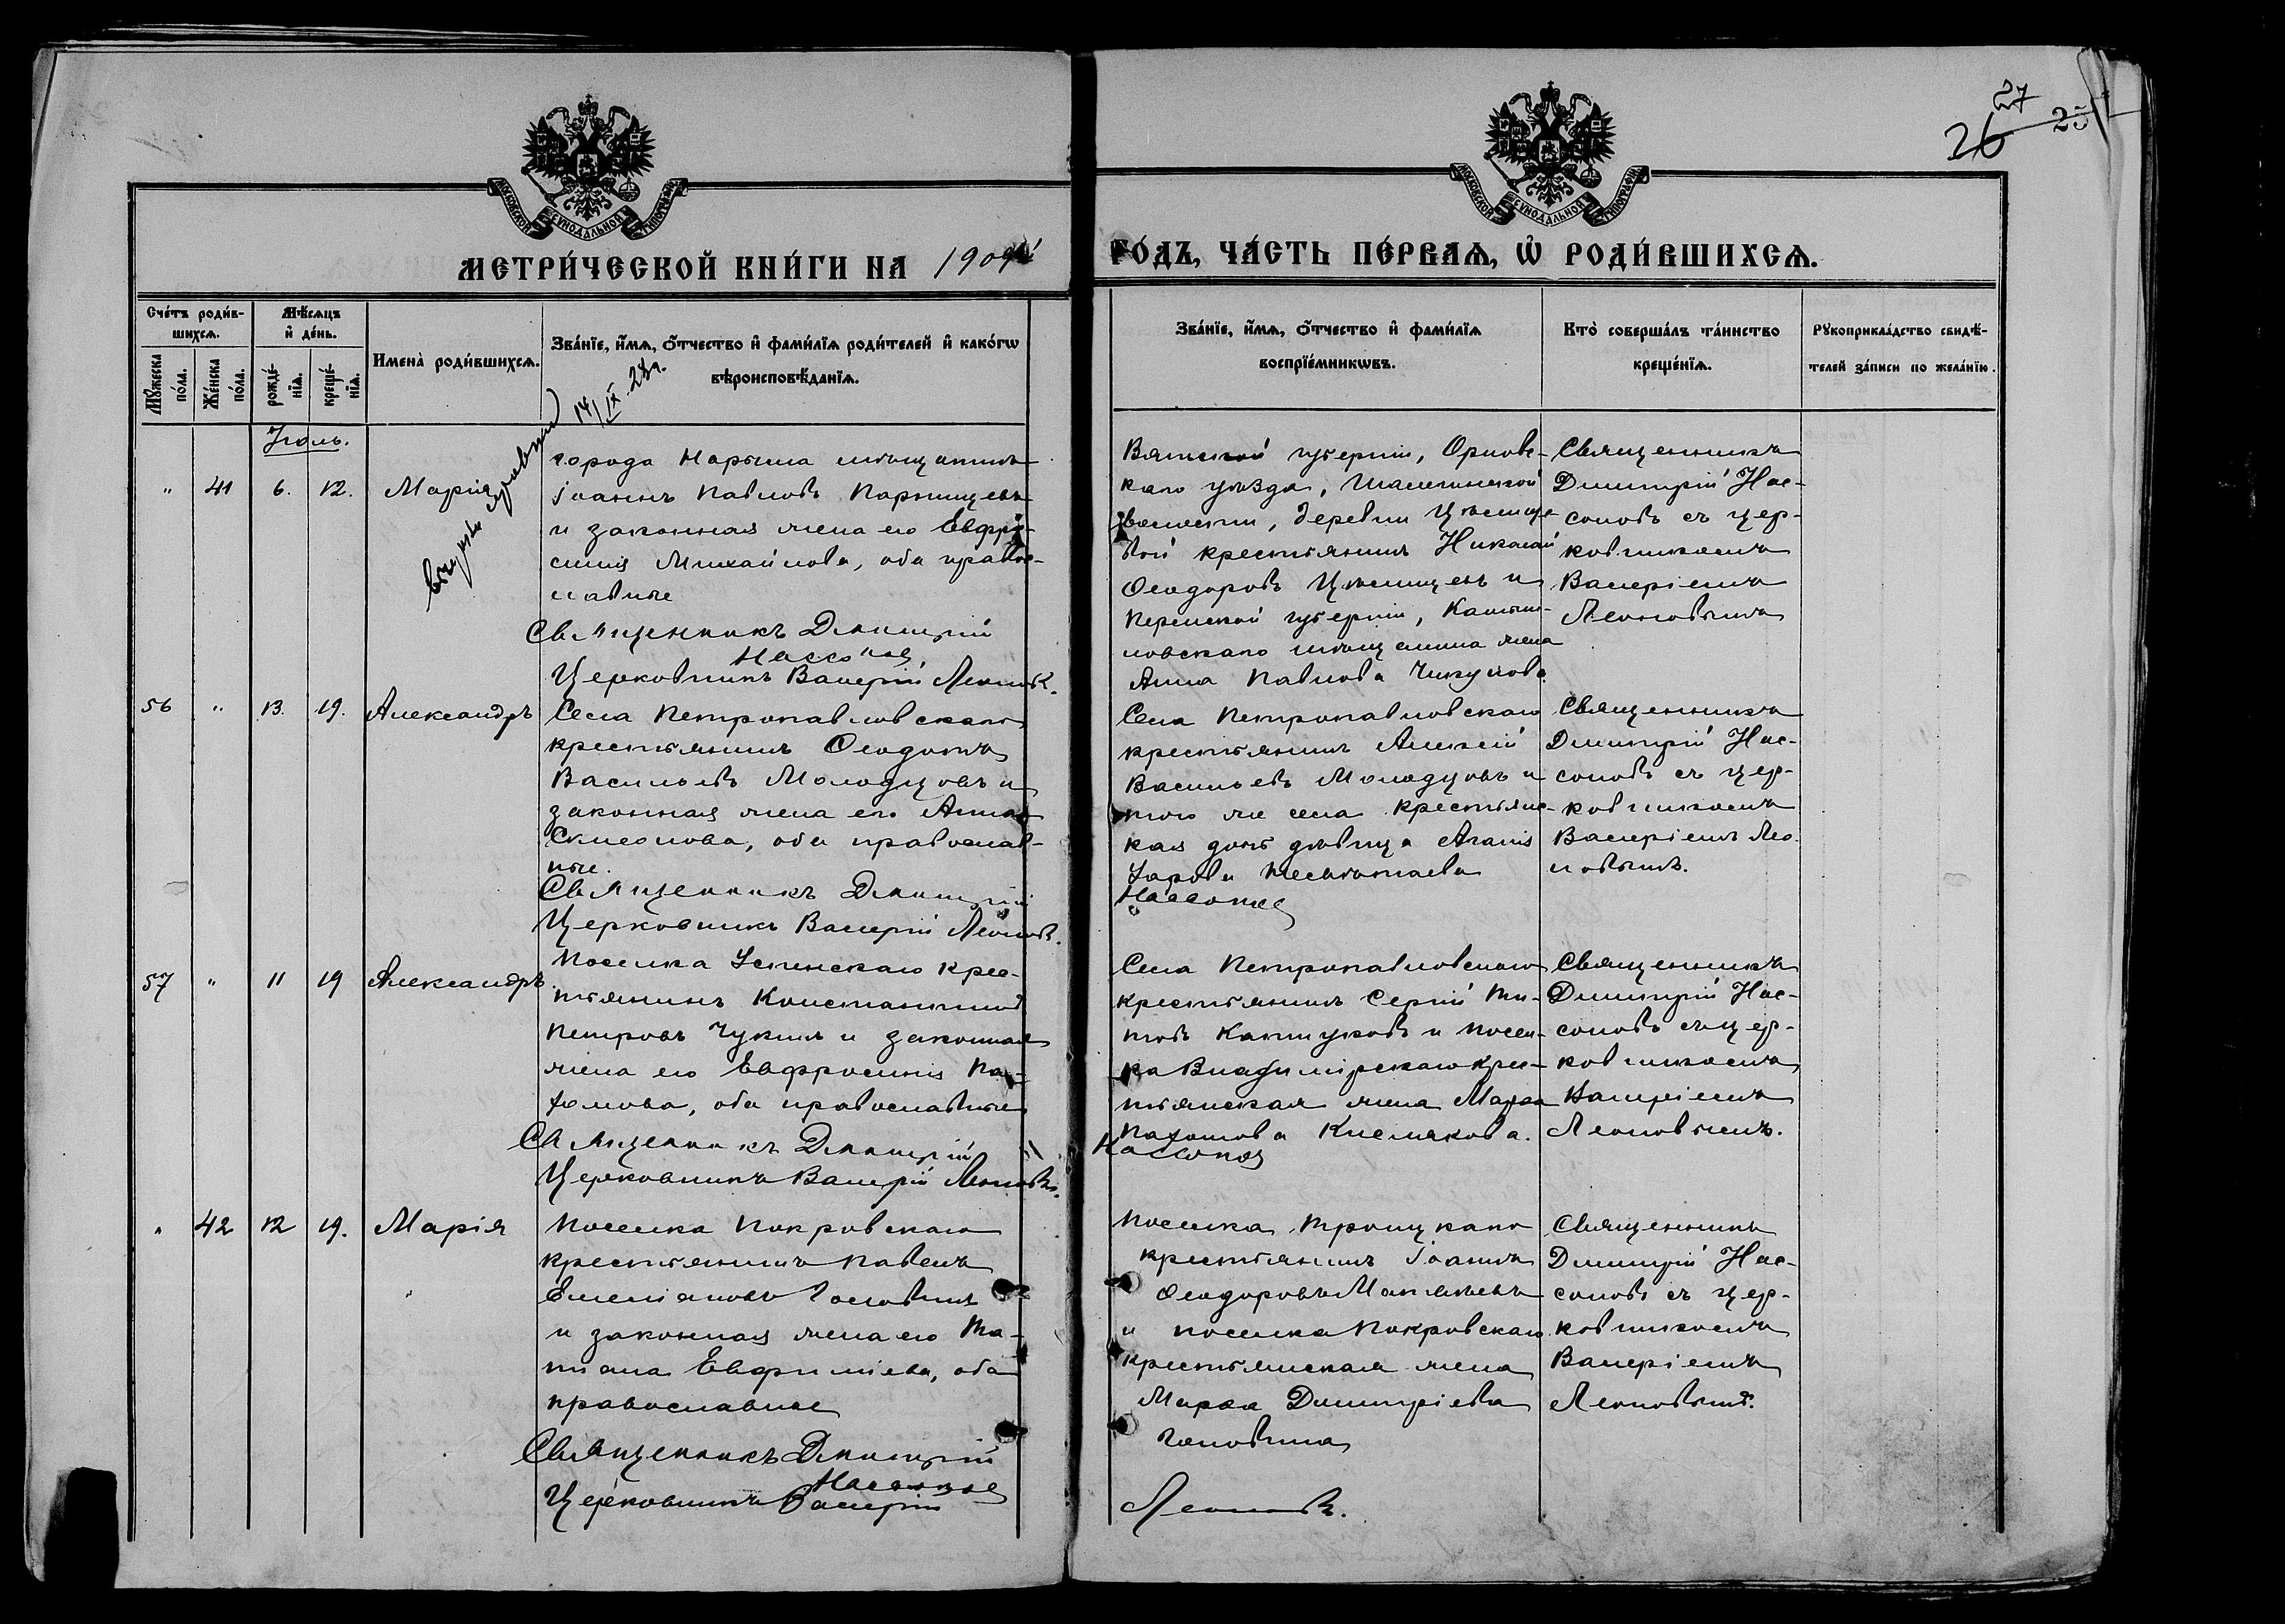 27
26 25
МОСКОВСКОЙ СѴНОДАЛЬНОЙ ТИПОГРАФІИ
МОСКОВСКОЙ СѴНОДАЛЬНОЙ ТИПОГРАФІИ
МЕТРИ́ЧЕСКОЙ КНИ́ГИ НА 1909й
ГО́ДЪ, ЧА́СТЬ ПЕ́РВАѦ, Ѡ҆ РОДИ́ВШИХСѦ.
Сче́тъ роди́в-
шихсѧ.
Мꙋ́жеска по́ла.
Же́нска по́ла.
Мѣ́сѧцъ
и҆ де́нь.
рожде́-
нїѧ.
креще́-
нїѧ.
Имена̀ роди́вшихсѧ.
Зва́нїе, и҆́мѧ, ѻ҆́тчество и҆ фами́лїѧ роди́телей и҆ како́гѡ
вѣроисповѣ́данїѧ.
Зва́нїе, и҆́мѧ, ѻ҆́тчество и҆ фами́лїѧ
воспрїе́мникѡвъ.
Кто̀ соверша́лъ та́инство
креще́нїѧ.
Рꙋкоприкла́дство свидѣ́-
телей за́писи по жела́нїю.
14/IX-28г.
Іюль.
" 41 6. 12. Марія
города Нарыма мѣщанинъ
Іоаннъ Павловъ Паршцевъ
и законная жена его Евфро-
синія Михайлова, оба правос-
лавные
Священникъ Димитрій
Нассонов
Церковникъ Валерій Леоновъ.
Вятской губерніи, Орловс-
каго уѣзда,
волости, деревни
вой крестьянинъ Николай
Ѳеодоровъ и
Пермской губерніи, Камыш-
ловскаго мѣщанина жена
Анна Павлова Чикунова
Священникъ
Димитрій Нас-
соновъ съ цер-
ковникомъ
Валеріемъ
Леоновымъ
56 " 13. 19. Александръ
Села Петропавловскаго
крестьянинъ Ѳеодотъ
Васильевъ Молодцовъ и
законная жена его Анна
Симеонова, оба православ-
ные.
Священникъ Димитрій
Церковникъ Валерій Леоновъ.
Села Петропавловскаго
крестьянинъ Алексій
Васильевъ Молодцовъ и
того же села крестьянс-
кая дочь дѣвица Агапія
Уарова
Нассонов
Священникъ
Димитрій Нас-
соновъ съ цер-
ковникомъ
Валеріемъ Лео-
новымъ.
57 " 11 19 Александръ
Поселка Успенскаго крес-
тьянинъ Константинъ
Петровъ Чукинъ и законная
жена его Евфросинія Па-
хомова, оба православные
Священникъ Димитрій
Церковникъ Валерій Леоновъ.
Села Петропавловскаго
крестьянинъ Сергій Ти-
товъ и посел-
ка Владимірскаго крес-
тьянская жена Марѳа
Пахомова
Нассонов
Священникъ
Димитрій Нас-
соновъ съ цер-
ковникомъ
Валеріемъ
Леоновымъ.
" 42 12 19. Марія
Поселка Покровскаго
крестьянинъ Павелъ
Емеліановъ Головинъ
и законная жена его Та-
тіана Евфиміева, оба
православные
Священникъ Димитрій
Нассонов
Церковникъ Валерій
Поселка Троицкаго
крестьянинъ Іоаннъ
Ѳеодоровъ
и поселка Покровскаго
крестьянская жена
Марѳа Димитріева
Головина
Леоновъ.
Священникъ
Димитрій Нас-
соновъ съ цер-
ковникомъ
Валеріемъ
Леоновымъ.